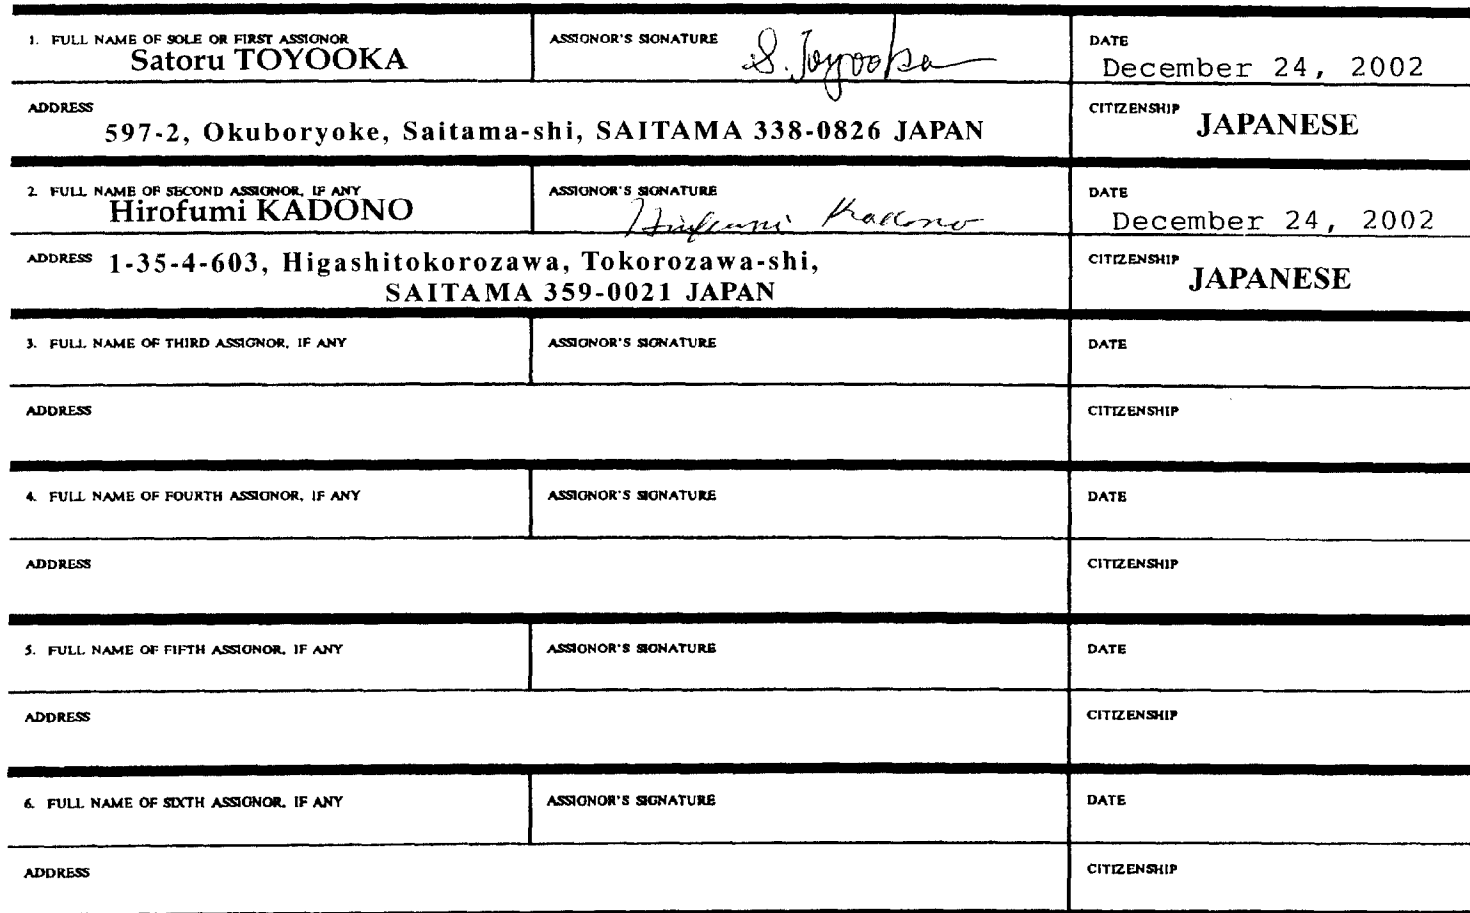 1. FULL NAME OF SOLE OR FIRST ASSIGNOR
Satoru TOYOOKA
ASSIGNOR'S SIGNATURE
S. Toyooka
DATE
December 24, 2002
ADDRESS
597-2, Okuboryoke, Saitama-shi, SAITAMA 338-0826 JAPAN
CITIZENSHIP JAPANESE
2. FULL NAME OF SECOND ASSIGNOR, IF ANY
Hirofumi KADONO
ASSIGNOR'S SIGNATURE
Hirofumi Kadono
DATE
December 24, 2002
ADDRESS 1-35-4-603, Higashitokorozawa, Tokorozawa-shi,
SAITAMA 359-0021 JAPAN
CITIZENSHIP
JAPANESE
3. FULL NAME OF THIRD ASSIGNOR, IF ANY
ASSIGNOR'S SIGNATURE
DATE
ADDRESS
CITIZENSHIP
4. FULL NAME OF FOURTH ASSIGNOR, IF ANY
ASSIGNOR'S SIGNATURE
DATE
ADDRESS
CITIZENSHIP
5. FULL NAME OF FIFTH ASSIGNOR, IF ANY
ASSIGNOR'S SIGNATURE
DATE
ADDRESS
CITIZENSHIP
6. FULL NAME OF SIXTH ASSIGNOR, IF ANY
ASSIGNOR'S SIGNATURE
DATE
ADDRESS
CITIZENSHIP